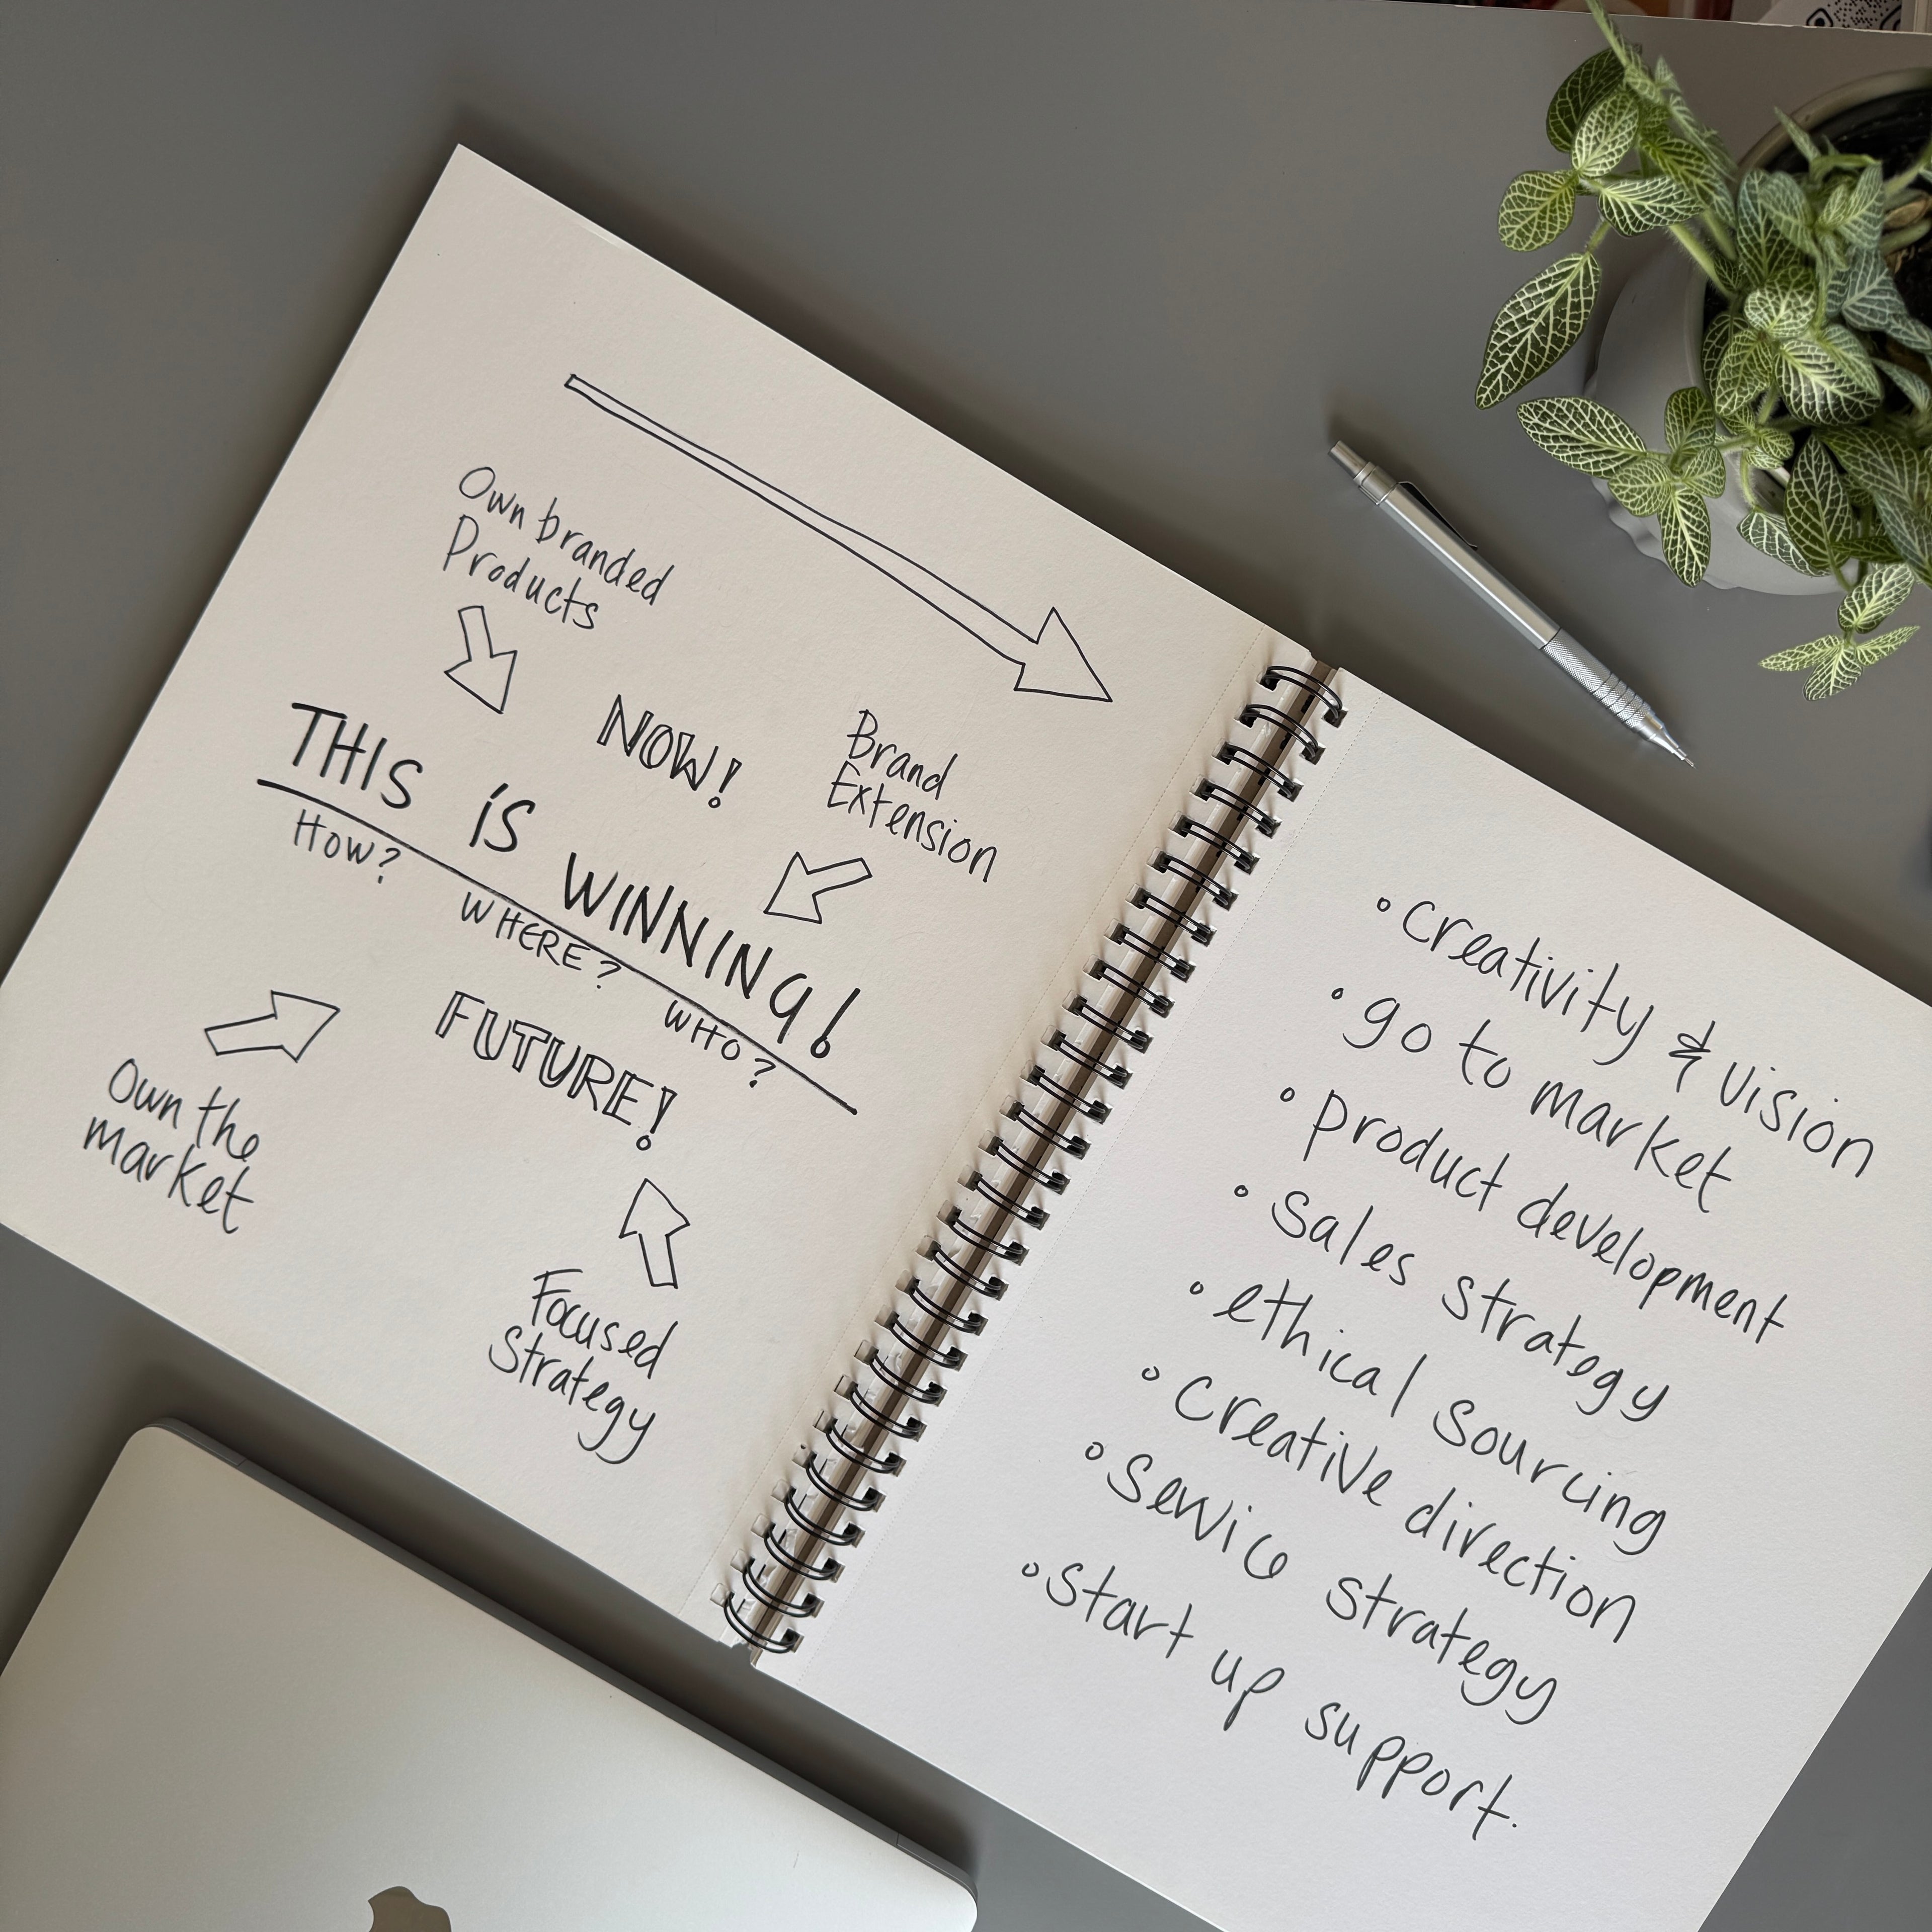 Own branded
Products
NOW!
Brand
Extension
THIS is WINNING!
How?
WHERE?
WHO?
FUTURE!
Own the
market
Focused
Strategy
• creativity & vision
• go to market
• product development
• sales strategy
• ethical sourcing
• creative direction
• service strategy
• start up support.